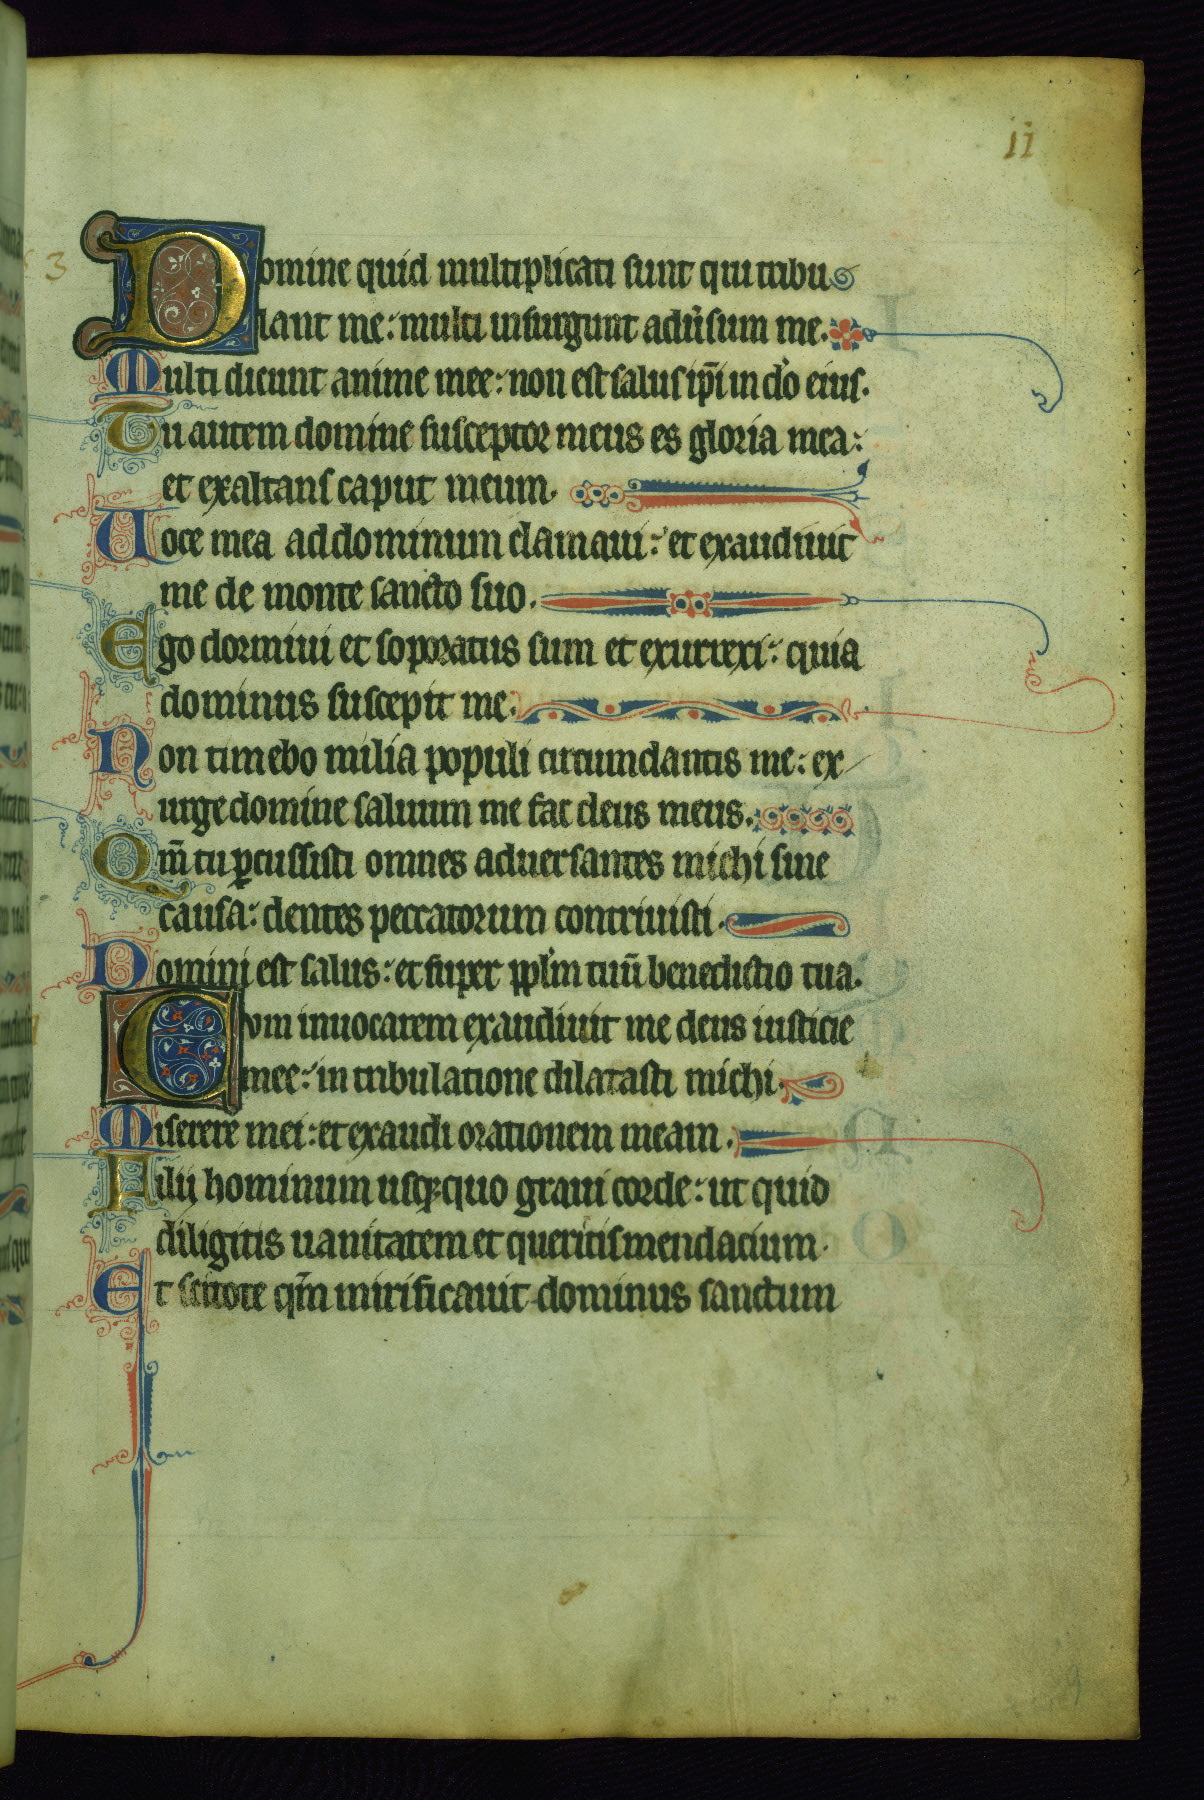 ii
3
Domine quid multiplicati sunt qui tribu
lant me: multi insurgunt adūsum me.
Multi dicunt anime mee: non est salus ip̄i in do eius.
Tu autem domine susceptor meus es gloria mea:
et exaltans caput meum.
Uoce mea ad dominum clamaui: et exaudiuit
me de monte sancto suo.
Ego dormiui et soporatus sum et exurrexi: quia
dominus suscepit me.
Non timebo milia populi circumdantis me: ex
urge domine saluum me fac deus meus.
Qm̄ tu ꝑcussisti omnes aduersantes michi sine
causa: dentes peccatorum contriuisti.
Domini est salus: et super ppl̄m tuū benedictio tua.
Cum inuocarem exaudiuit me deus iusticie
mee: in tribulatione dilatasti michi.
Miserere mei: et exaudi orationem meam.
Filii hominum usqꝫ quo graui corde: ut quid
diligitis uanitatem et queritis mendacium.
Et scitote qm̄ mirificauit dominus sanctum
9